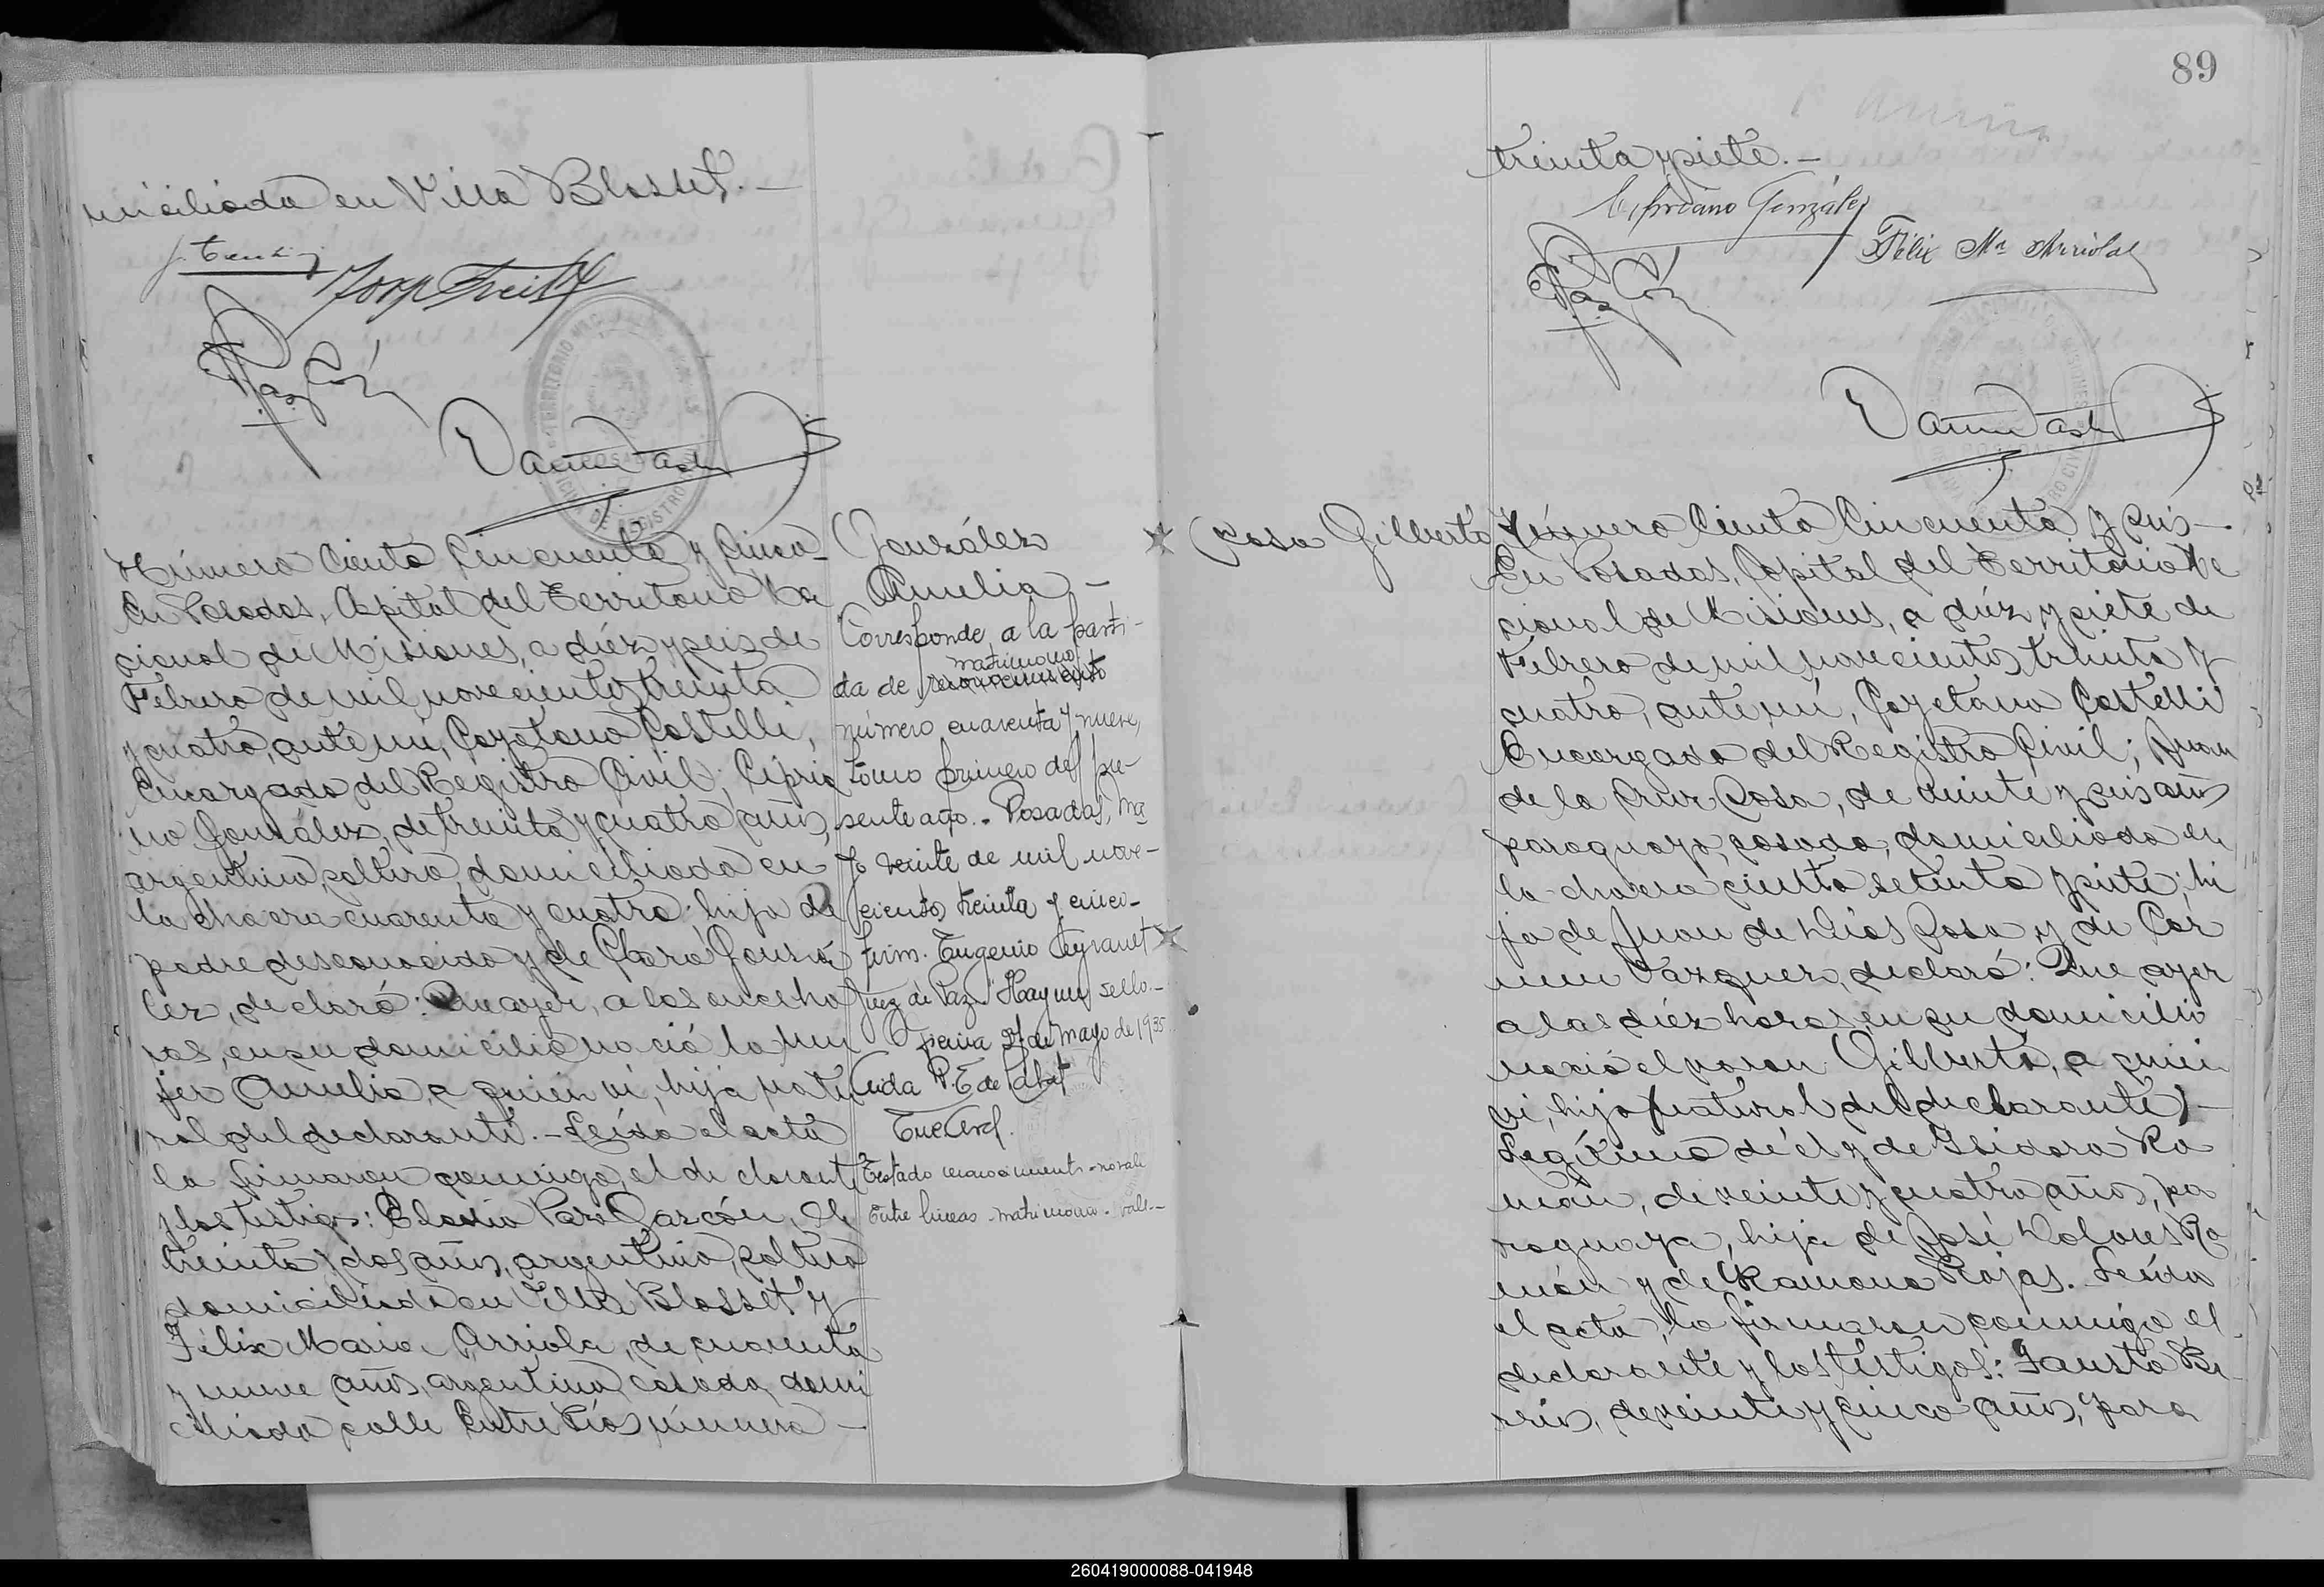 miciliado en Villa Blosset.—
Número Ciento Cincuenta y Cinco—
En Posadas, Capital del Territorio Na
cional de Misiones, a diéz y seis de
Febrero de mil novecientos treinta
y cuatro, ante mí, Cayetano Castelli,
Encargado del Registro Civil; Cipria
no González, de treinta y cuatro años,
argentino, soltero, domiciliado en
la chacra cuarenta y cuatro; hijo de
padre desconocido y de Clara Gonzá
lez, declaró: Que ayer, a las once ho
ras, en su domicilio nació la mu
jer Amelia, a quien ví, hija natu
ral del declarante.—Leída el acta
la firmaron conmigo, el declarante
y los testigos: Eladio Paz Garzón, de
treinta y dos años, argentino, soltero
domiciliado en Villa Blosset y
Félix María Arriola, de cuarenta
y nueve años, argentino, casado, domi
ciliado calle Entre Ríos número—
González
Amelia—
Corresponde a la parti-
da de reconocimiento
matrimonio
número cuarenta y nueve,
tomo primero del pre-
sente año.- Posadas, Ma
yo veinte de mil nove-
cientos treinta y cinco-
firm. Eugenio
Juez de Paz. Hay un sello.-
27 de Mayo de 1935
Testado reconocimiento-no vale
Entre líneas-matrimonio-vale-
POSADAS
89
treinta y siete.—
Cipriano González
Félix Ma Arriola
Sosa Gilberto
Número Ciento Cincuenta y seis—
En Posadas, Capital del Territorio Na
cional de Misiones, a diéz y siete de
Febrero de mil novecientos treinta y
cuatro, ante mí, Cayetano Castelli
Encargado del Registro Civil; Juan
de la Cruz Sosa, de veinte y seis años
paraguayo, casado, domiciliado en
la chacra ciento setenta y siete; hi
jo de Juan de Dios Sosa y de Car
men Vázquez, declaró: Que ayer
a las diéz horas, en su domicilio
nació el varon Gilberto, a quien
ví, hijo (natural del declarante)—
Legítimo de él y de Isidora Ro
mán, de veinte y cuatro años, pa
raguaya, hija de José Dolores Ro
mán y de Ramona Rojas. Leída
el acta, la firmaron conmigo el
declarante y los testigos: Fausto Be
rrios, de veinte y cinco años, para
260419000088-041948